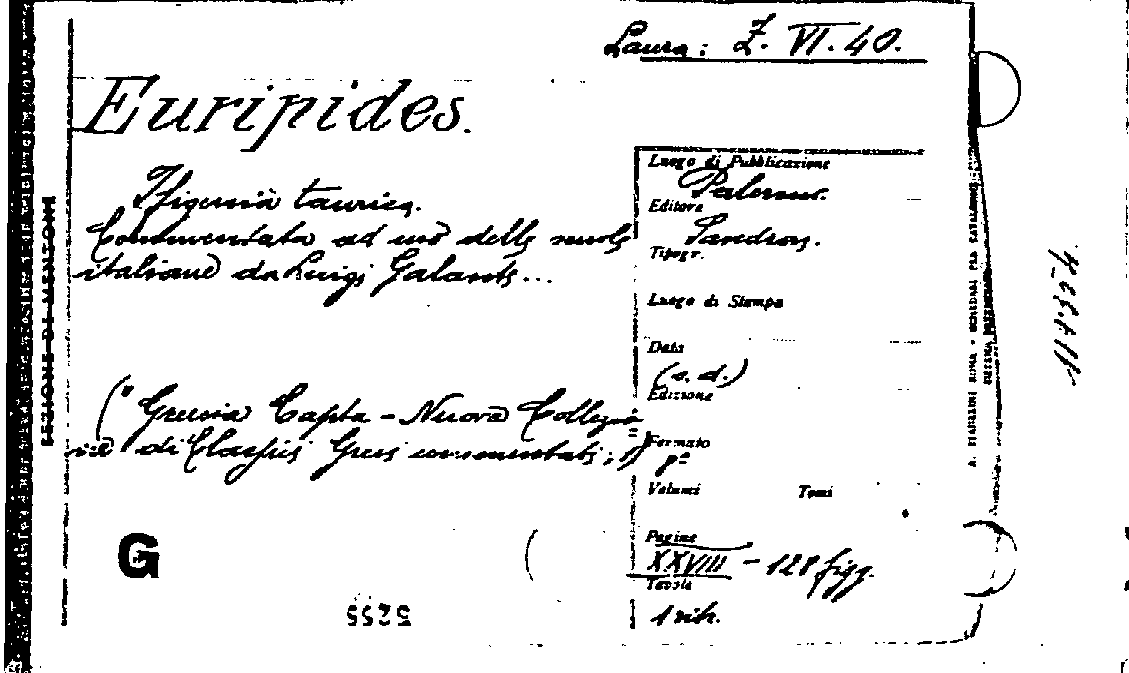 Laura: Z. VI. 40.
Euripides.
Ifigenia taurica.
Commentata ad uso delle scuole
italiane da Luigi Galante...
("Graecia Capta - Nuova Collezio=
ne di Classici Greci commentati, 1)
G
5255
Luogo di Pubblicazione
Palermo.
Editore
Sandron.
Tipogr.
Luogo di Stampa
Data
(s. d.)
Edizione
Formato
8°
Volumi Tomi
Pagine
XXVIII - 128 figg.
Tavole
1 ritr.
SEZIONE DI MENTONE
A. STADERINI ROMA - SCHEDARI PER CATALOGHI